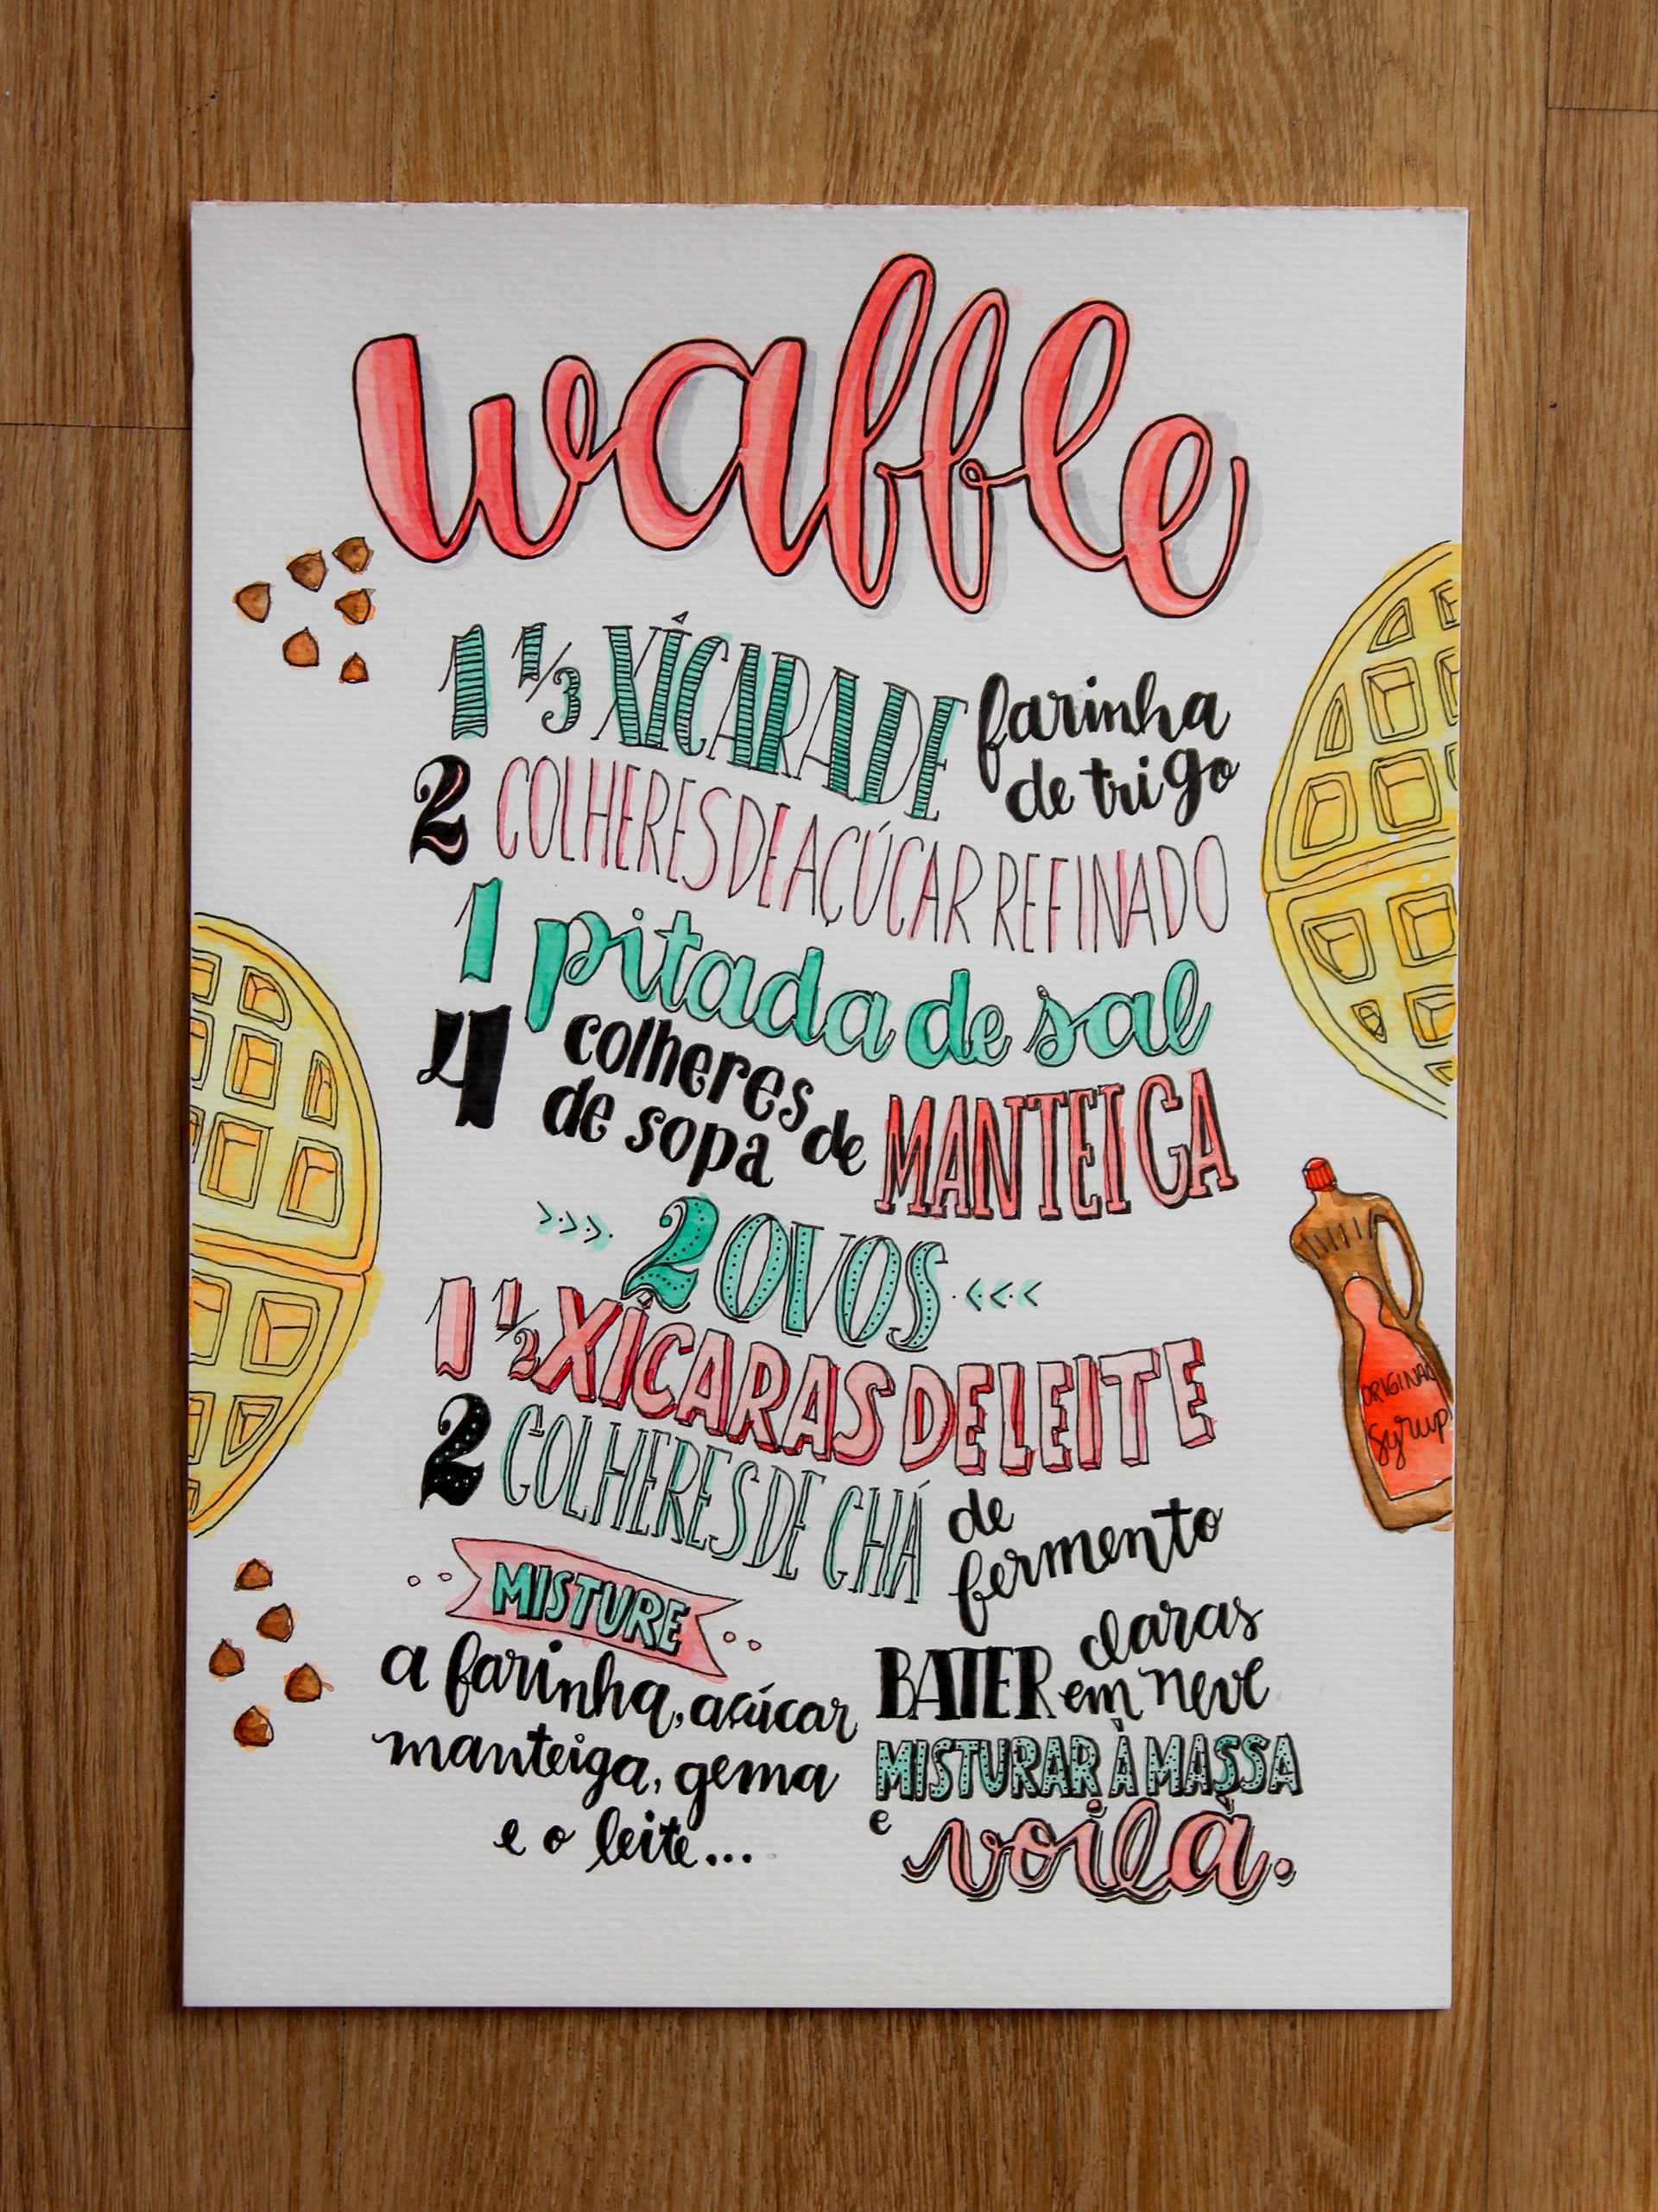 waffle
1 1/3 XÍCARA DE farinha de trigo
2 COLHERES DE AÇÚCAR REFINADO
1 pitada de sal
4 colheres de sopa de MANTEIGA
2 OVOS
1 1/2 XÍCARAS DE LEITE
2 COLHERES DE CHÁ de fermento
MISTURE
a farinha, açúcar
manteiga, gema
e o leite...
BATER claras em neve
MISTURAR À MASSA
e voilà.
ORIGINAL
Syrup